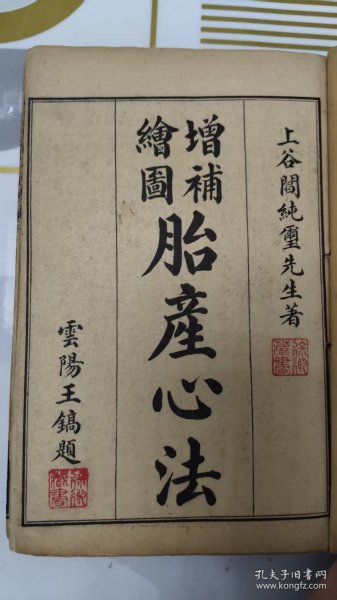 上谷閻純璽先生著
增補
繪圖
胎產心法
雲陽王鎬題
孔夫子旧书网